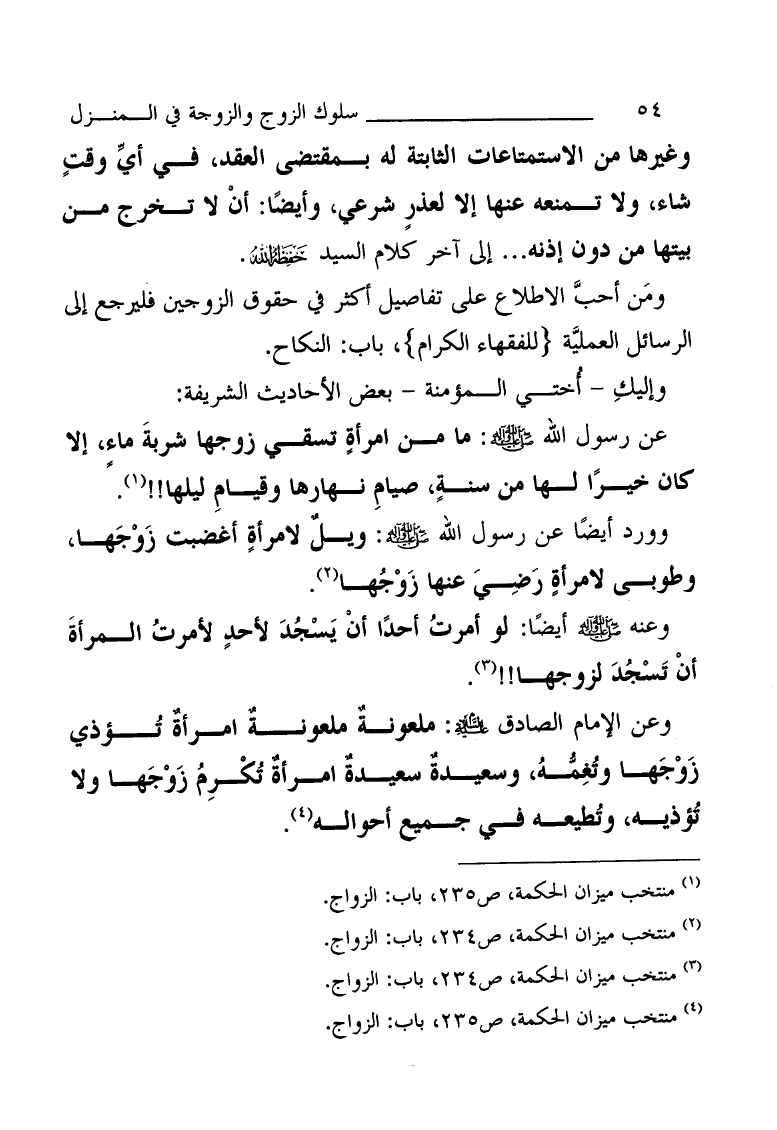 ٥٤ سلوك الزوج والزوجة في الـمنـزل
وغيرها من الاستمتاعات الثابتة له بـمقتضى العقد، فـي أيِّ وقتٍ
شاء، ولا تـمنعه عنها إلا لعذرٍ شرعي، وأيضًا: أنْ لا تـخرج مـن
بيتها من دون إذنه... إلى آخر كلام السيد حَفِظَهُ اللهُ.
ومَن أحبَّ الاطلاع على تفاصيل أكثر في حقوق الزوجين فليرجع إلى
الرسائل العمليَّة {للفقهاء الكرام}، باب: النكاح.
وإليكِ - أُختـي الـمؤمنة - بعض الأحاديث الشريفة:
عن رسول الله ﷺ: ما مـن امرأةٍ تسقـي زوجها شربةَ ماءٍ، إلا
كان خيـرًا لـها من سنـةٍ، صيامِ نـهارها وقيـامِ ليلها!!(١).
وورد أيضًا عن رسول الله ﷺ: ويـلٌ لامرأةٍ أغضبت زَوْجَهـا،
وطوبـى لامرأةٍ رَضِـيَ عنها زَوْجُهـا(٢).
وعنه ﷺ أيضًا: لو أمرتُ أحدًا أنْ يَسْجُدَ لأحدٍ لأمرتُ الـمرأةَ
أنْ تَسْجُدَ لزوجهـا!!(٣).
وعن الإمام الصادق عليه السلام: ملعونـةٌ ملعونـةٌ امـرأةٌ تُـؤذي
زَوْجَهـا وتُغِمُّـهُ، وسعيـدةٌ سعيـدةٌ امـرأةٌ تُكْـرِمُ زَوْجَهـا ولا
تُؤذيـه، وتُطيعـه فـي جـميع أحوالـه(٤).
(١) منتخب ميزان الحكمة، ص٢٣٥، باب: الزواج.
(٢) منتخب ميزان الحكمة، ص٢٣٤، باب: الزواج.
(٣) منتخب ميزان الحكمة، ص٢٣٤، باب: الزواج.
(٤) منتخب ميزان الحكمة، ص٢٣٥، باب: الزواج.